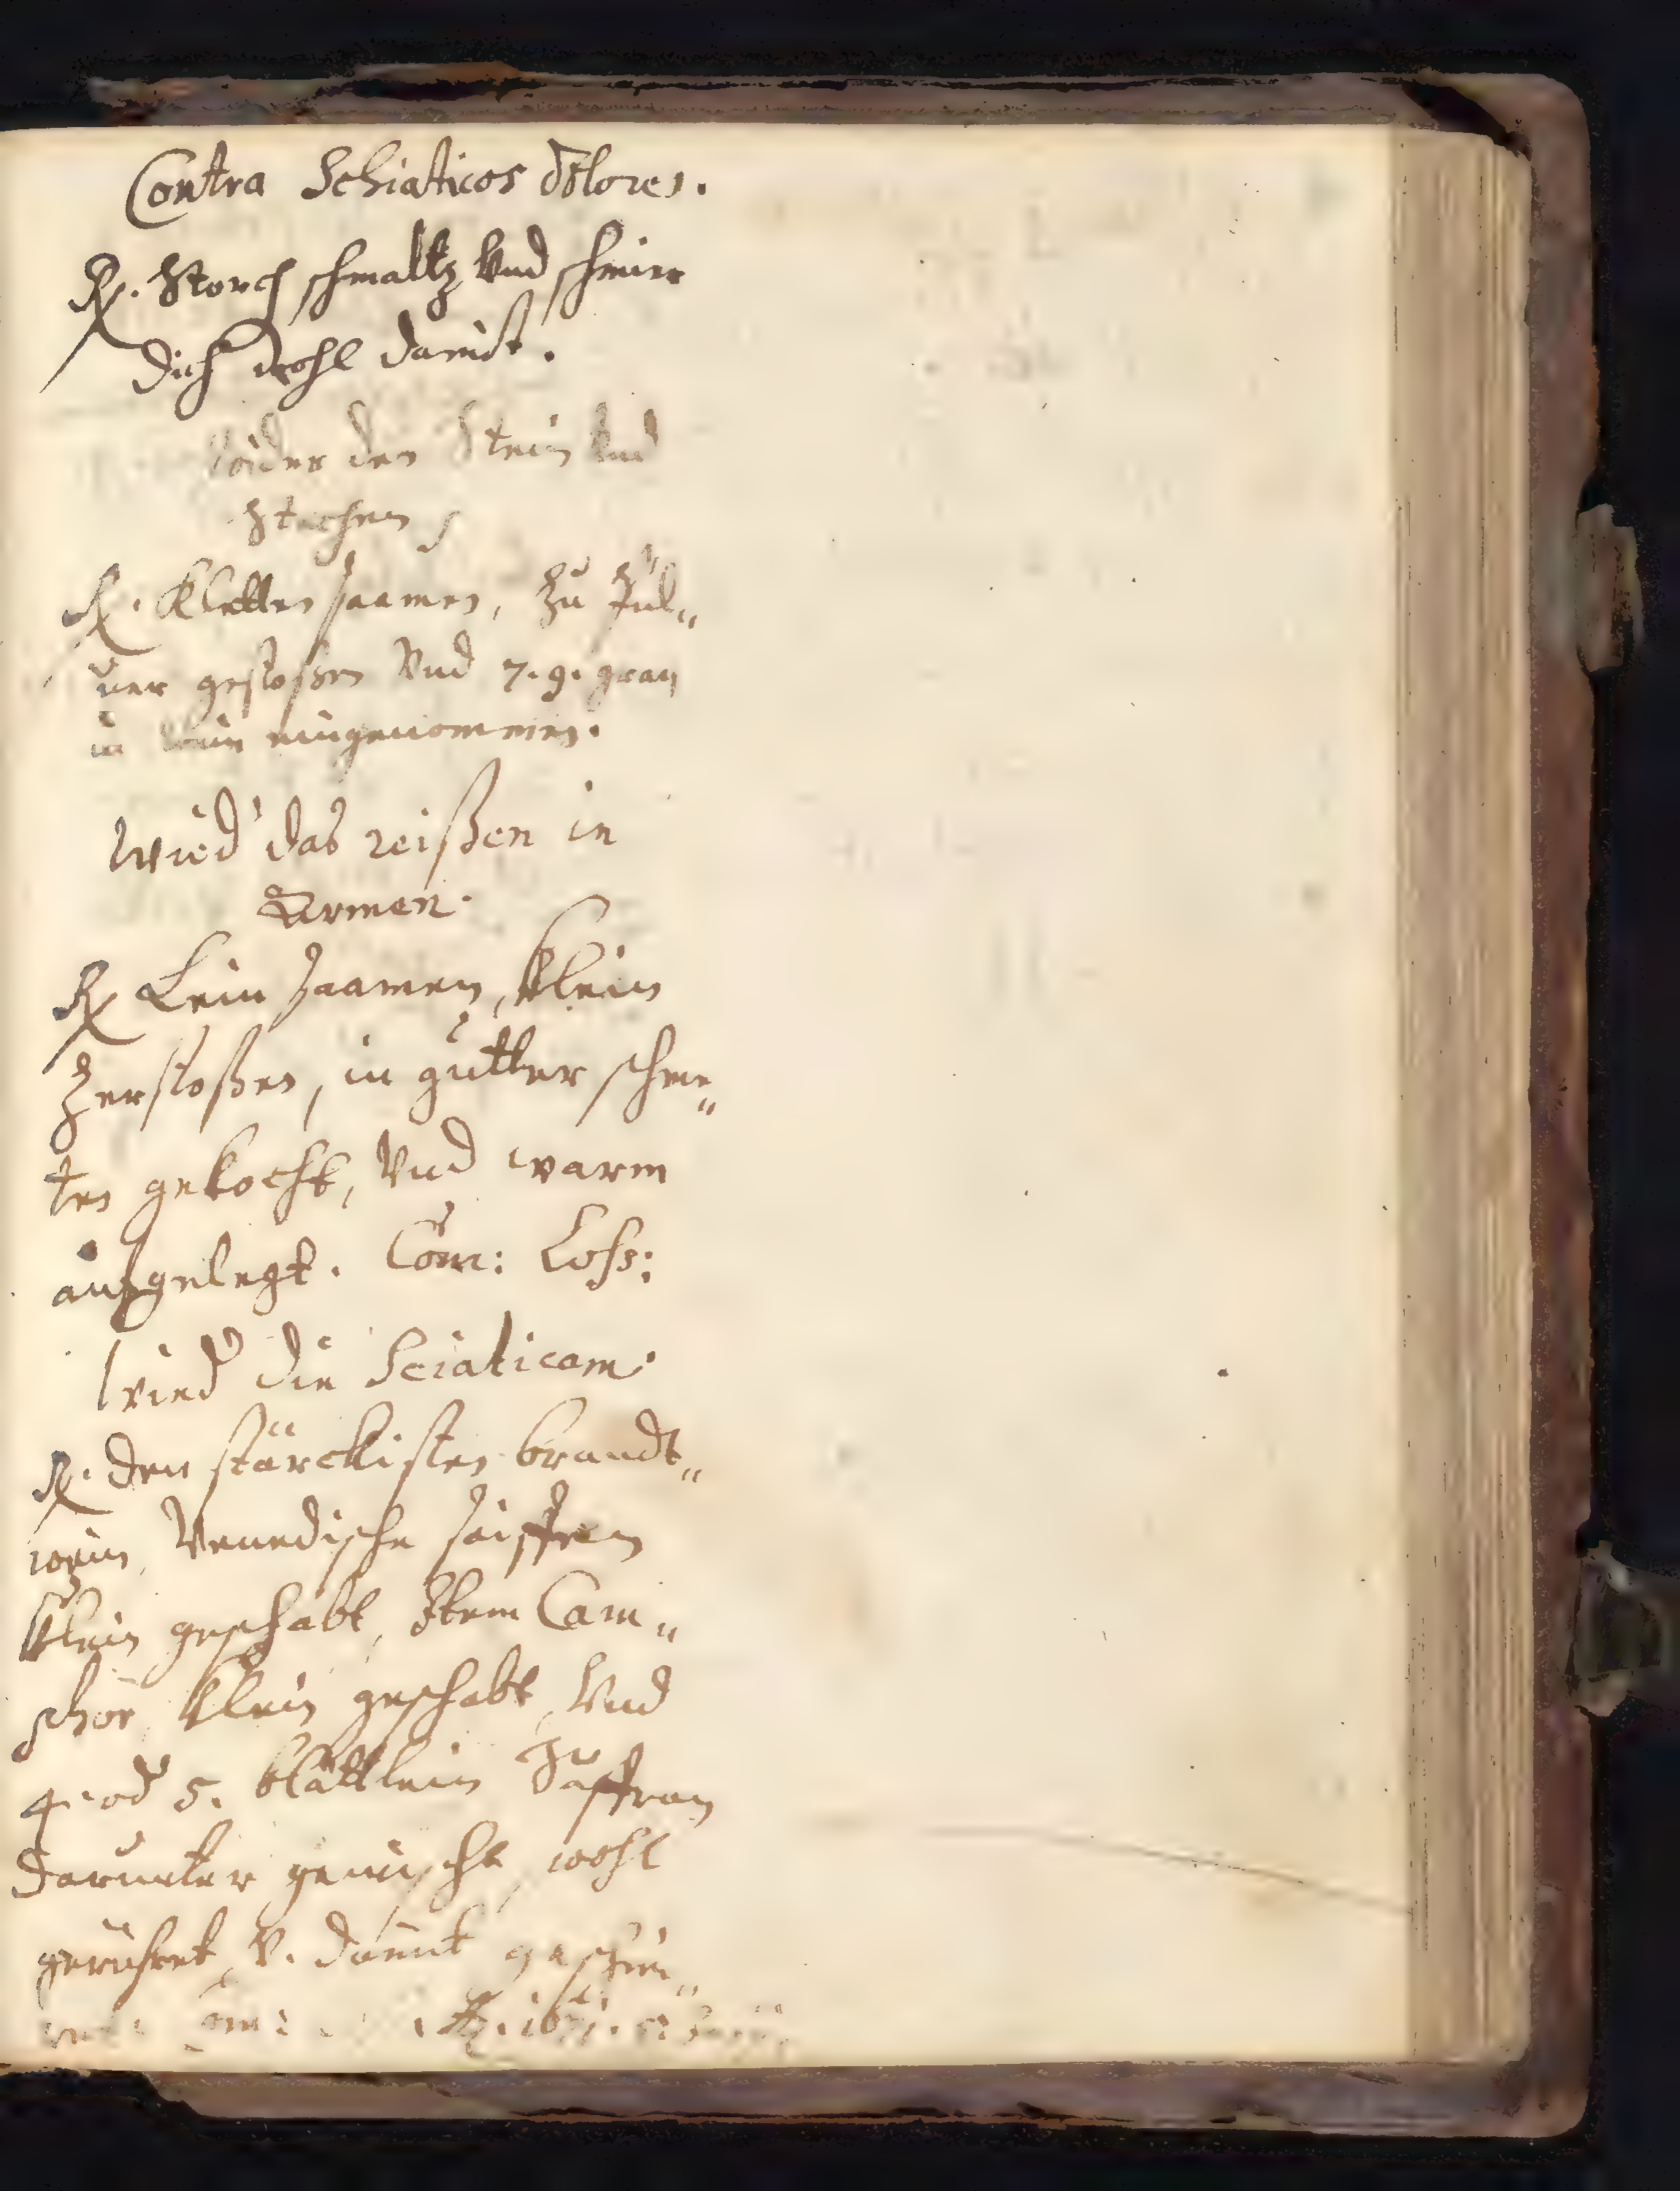 Contra Schiaticos dolores.
℞. Storch schmaltz Vnd schmier
dich wohl damit.
Wider den Stein Vnd
Stechen
℞. Kletten saamen, zu Pul„
uer gestoßen Vnd 7. 9. gran
in Wein eingenommen.
Wied das reißen in
Armen.
℞ Lein saamen, klein
Zerstoßen, in gutter schme„
ten gekocht, Vnd warm
aufgelegt. Com: Loss:
Wied die Sciaticam.
℞. den stärckisten brandt„
wein, Venedische saiffen
klein geschabt, Item Cam„
phor, klein geschabt, Vnd
4. od 5. blättlein Saffran
darunter gemischt, wohl
gerühret, V. damit geschmi„
1671.